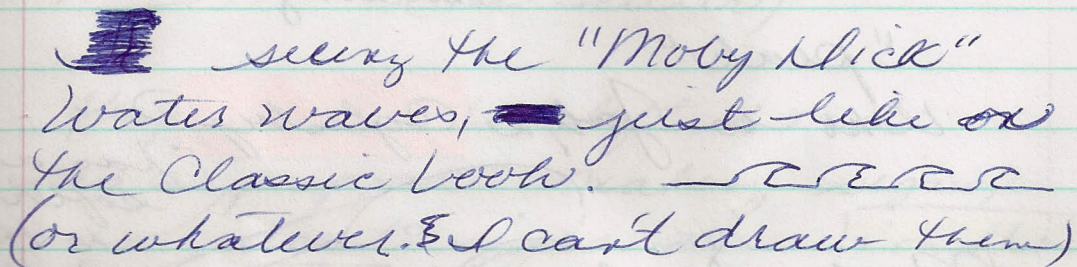 seeing the "Moby Dick"
Water waves, just like on
the Classic book.
(or whatever. & I can't draw them)